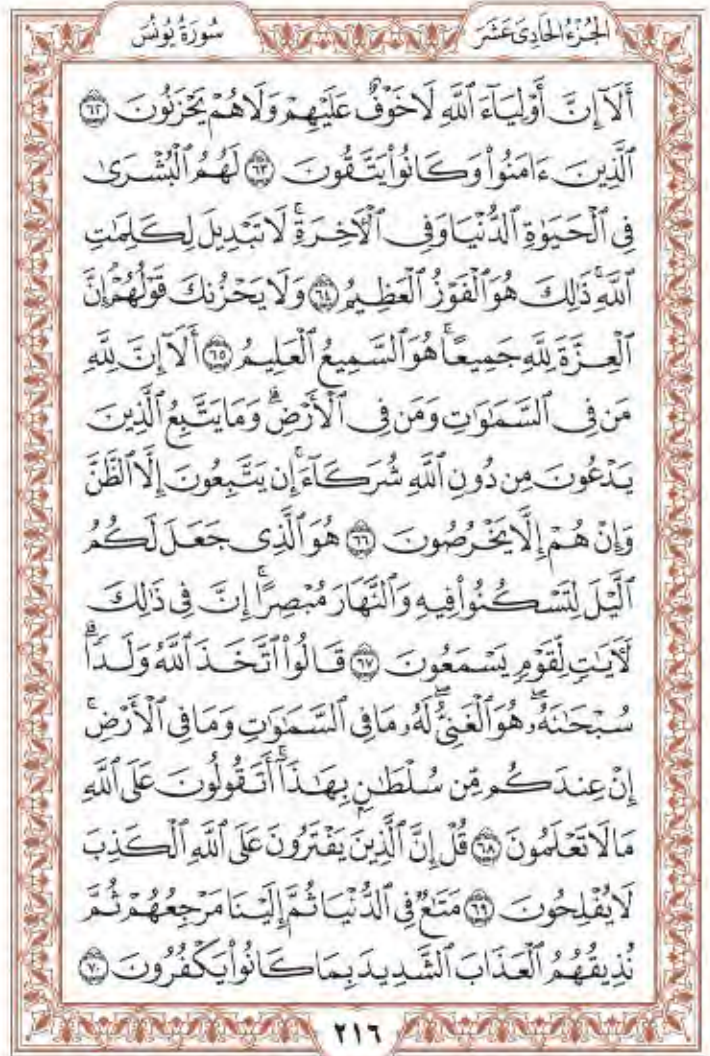 الجُزْءُ الحَادِىَ عَشَرَ
سُورَةُ يُونُسَ
أَلَآ إِنَّ أَوْلِيَآءَ ٱللَّهِ لَا خَوْفٌ عَلَيْهِمْ وَلَا هُمْ يَحْزَنُونَ ٦٢
ٱلَّذِينَ ءَامَنُوا۟ وَكَانُوا۟ يَتَّقُونَ ٦٣ لَهُمُ ٱلْبُشْرَىٰ
فِى ٱلْحَيَوٰةِ ٱلدُّنْيَا وَفِى ٱلْـَٔاخِرَةِ ۚ لَا تَبْدِيلَ لِكَلِمَٰتِ
ٱللَّهِ ۚ ذَٰلِكَ هُوَ ٱلْفَوْزُ ٱلْعَظِيمُ ٦٤ وَلَا يَحْزُنكَ قَوْلُهُمْ ۘ إِنَّ
ٱلْعِزَّةَ لِلَّهِ جَمِيعًا ۚ هُوَ ٱلسَّمِيعُ ٱلْعَلِيمُ ٦٥ أَلَآ إِنَّ لِلَّهِ
مَن فِى ٱلسَّمَٰوَٰتِ وَمَن فِى ٱلْأَرْضِ ۗ وَمَا يَتَّبِعُ ٱلَّذِينَ
يَدْعُونَ مِن دُونِ ٱللَّهِ شُرَكَآءَ ۚ إِن يَتَّبِعُونَ إِلَّا ٱلظَّنَّ
وَإِنْ هُمْ إِلَّا يَخْرُصُونَ ٦٦ هُوَ ٱلَّذِى جَعَلَ لَكُمُ
ٱلَّيْلَ لِتَسْكُنُوا۟ فِيهِ وَٱلنَّهَارَ مُبْصِرًا ۚ إِنَّ فِى ذَٰلِكَ
لَـَٔايَٰتٍ لِّقَوْمٍ يَسْمَعُونَ ٦٧ قَالُوا۟ ٱتَّخَذَ ٱللَّهُ وَلَدًا ۗ
سُبْحَٰنَهُۥ ۖ هُوَ ٱلْغَنِىُّ ۖ لَهُۥ مَا فِى ٱلسَّمَٰوَٰتِ وَمَا فِى ٱلْأَرْضِ ۚ
إِنْ عِندَكُم مِّن سُلْطَٰنٍۭ بِهَٰذَآ ۚ أَتَقُولُونَ عَلَى ٱللَّهِ
مَا لَا تَعْلَمُونَ ٦٨ قُلْ إِنَّ ٱلَّذِينَ يَفْتَرُونَ عَلَى ٱللَّهِ ٱلْكَذِبَ
لَا يُفْلِحُونَ ٦٩ مَتَٰعٌ فِى ٱلدُّنْيَا ثُمَّ إِلَيْنَا مَرْجِعُهُمْ ثُمَّ
نُذِيقُهُمُ ٱلْعَذَابَ ٱلشَّدِيدَ بِمَا كَانُوا۟ يَكْفُرُونَ ٧٠
٢١٦